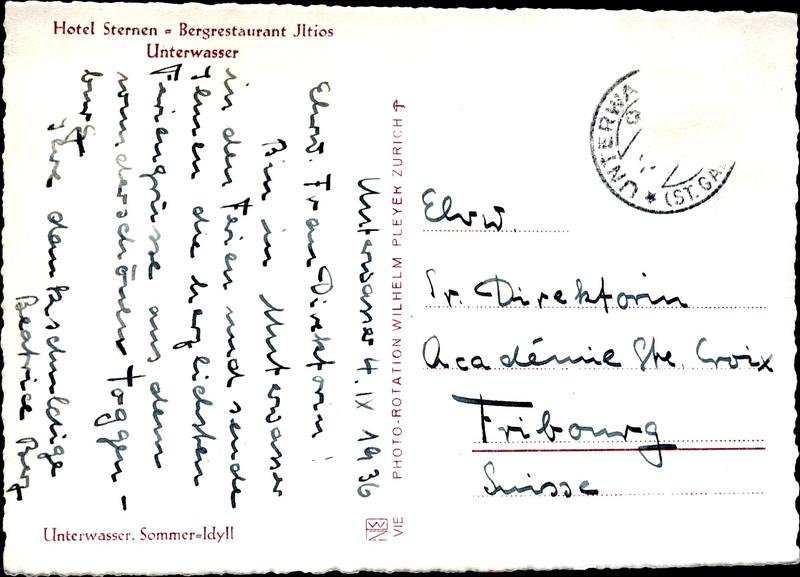 Hotel Sternen = Bergrestaurant Jltios
Unterwasser
Unterwasser 4. IX 1936
Ehrw. Frau Direktorin!
Bin in Unterwasser
in den Ferien und sende
Ihnen die herzlichsten
Feriengrüsse aus dem
wunderschönen Toggen-
burg
Ihre dankschuldige
Beatrice Burg
Unterwasser. Sommer=Idyll
PHOTO-ROTATION WILHELM PLEYER ZURICH
VIE
UNTERWA
(ST. GA
Ehrw.
Fr. Direktorin
Académie Ste. Croix
Fribourg
Suisse